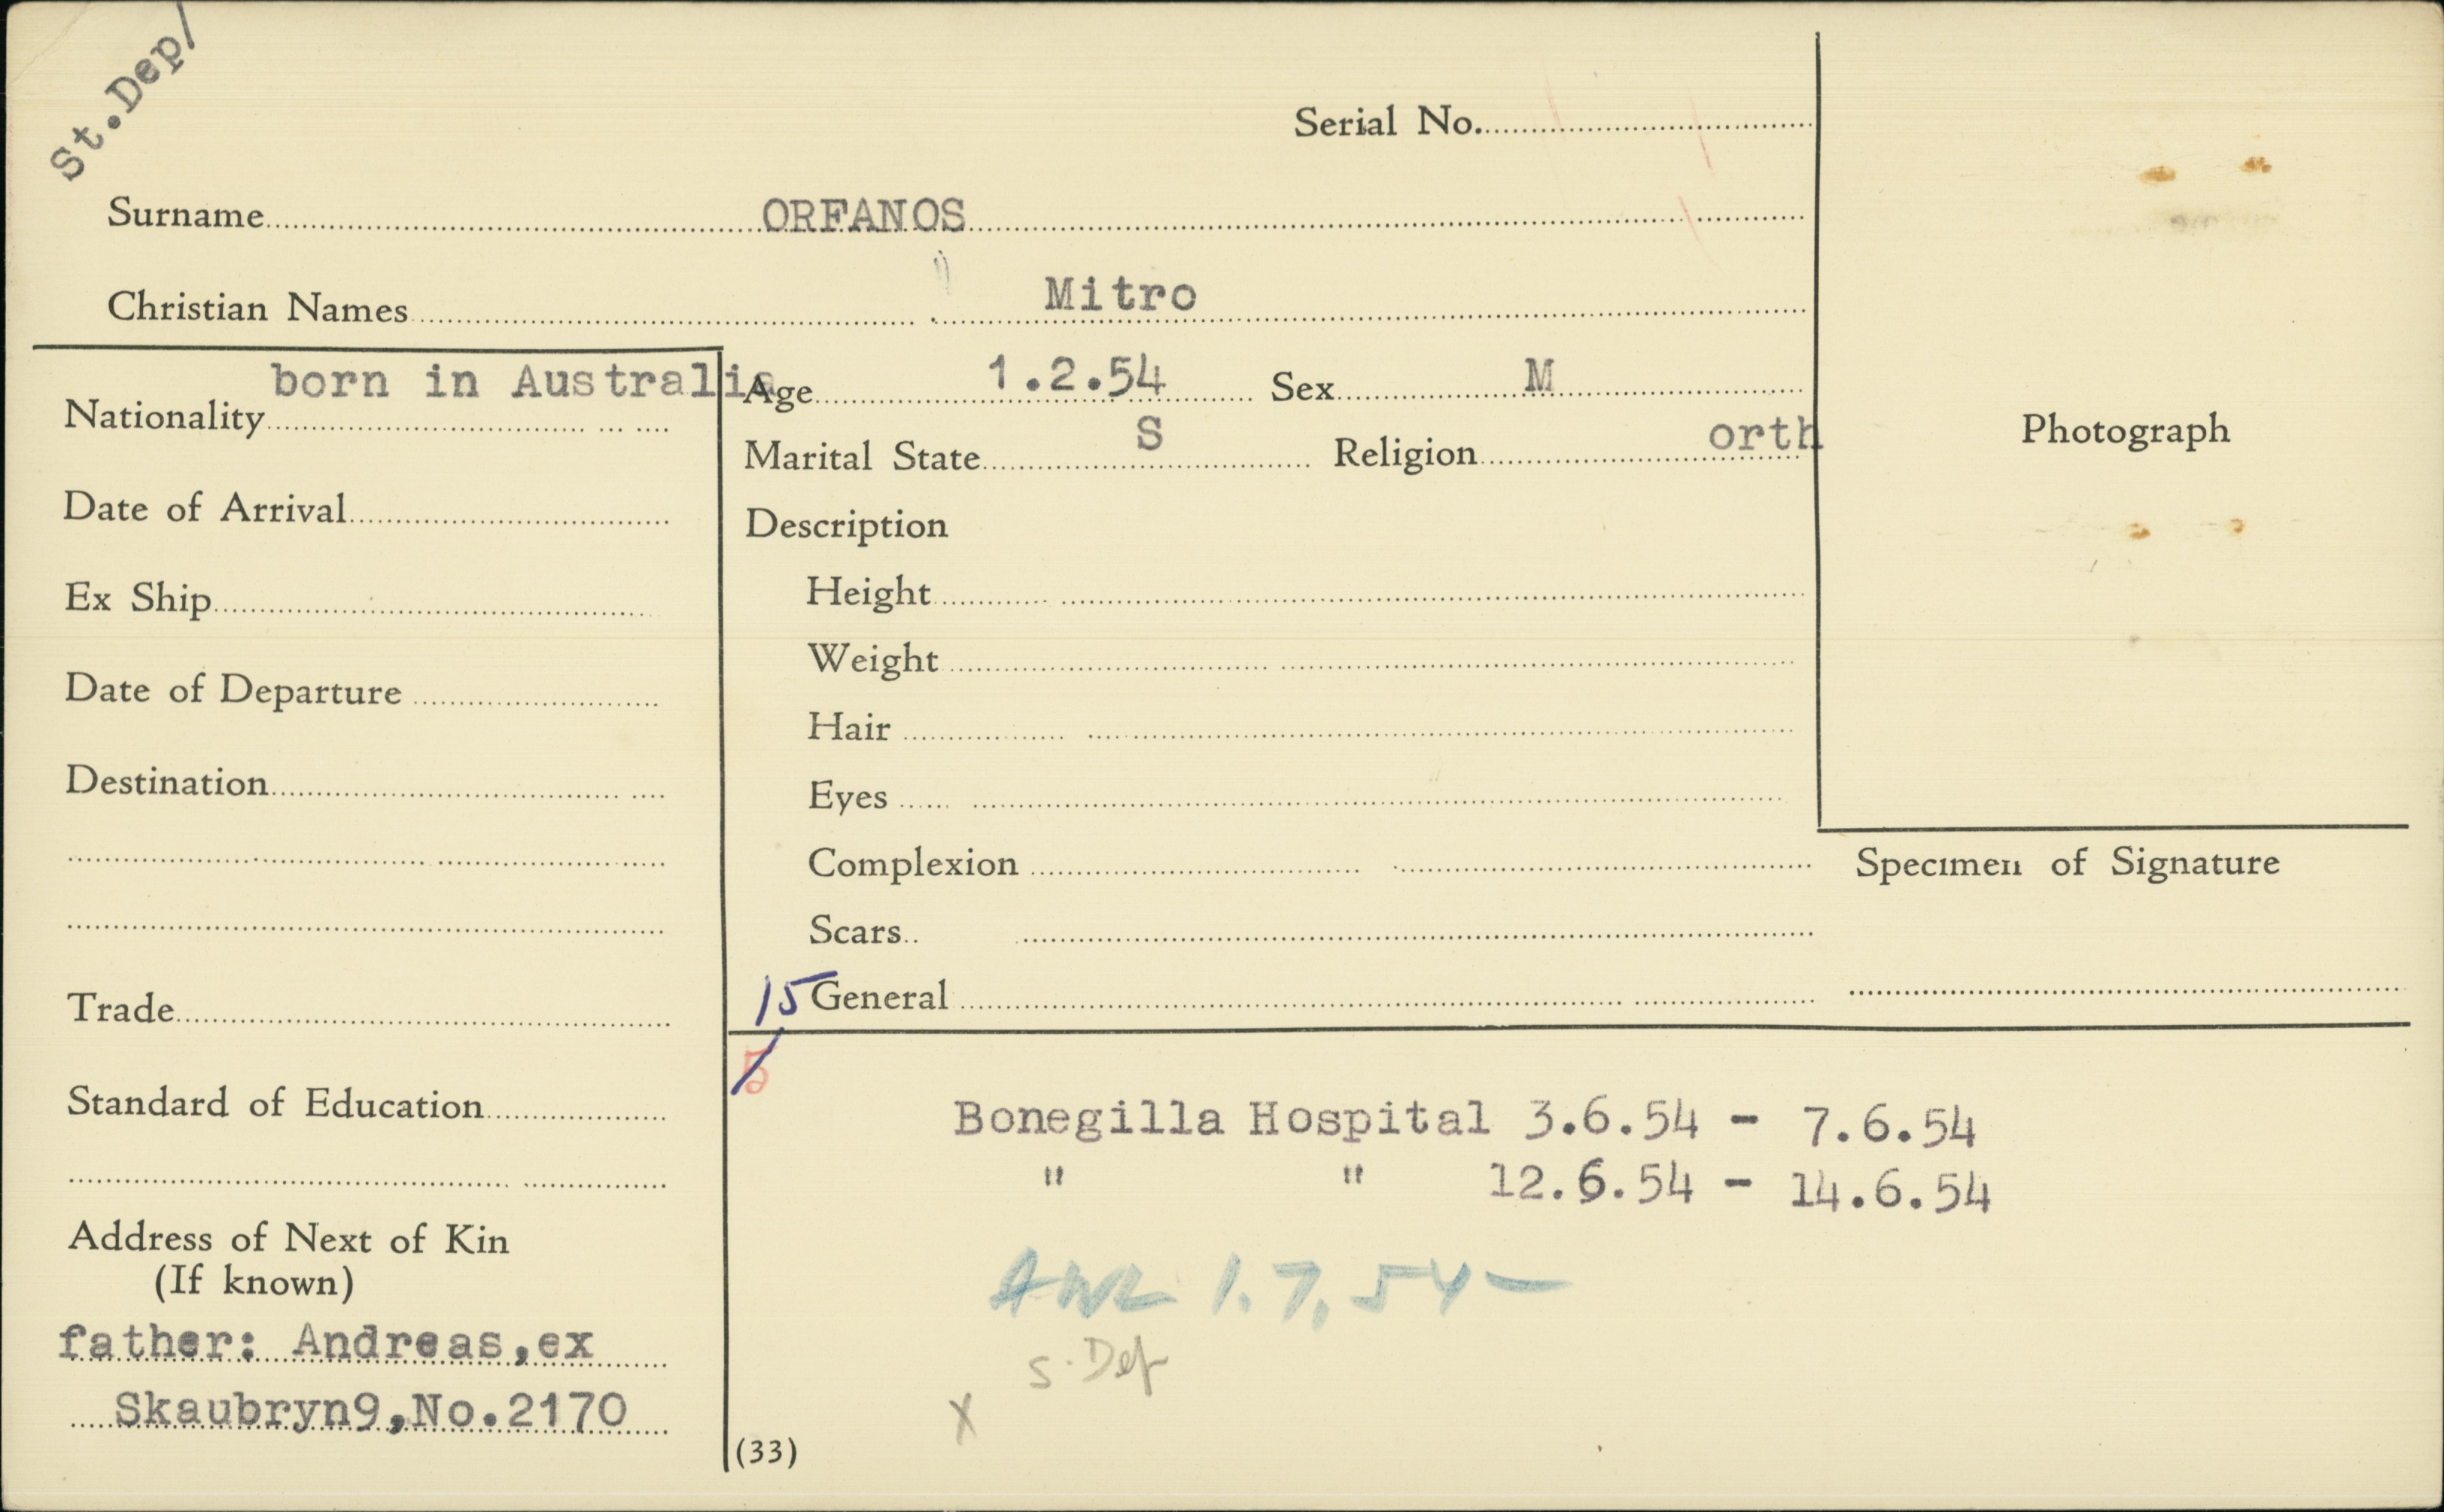 St.Dep/
Serial No.
Surname ORFANOS
Christian Names Mitro
Nationality born in Australia
Age 1.2.54 Sex M
Marital State S Religion orth
Photograph
Date of Arrival
Description
Ex Ship
Height
Weight
Date of Departure
Hair
Destination
Eyes
Complexion
Specimen of Signature
Scars
15 General
Trade
5
Standard of Education
Bonegilla Hospital 3.6.54 - 7.6.54
" " 12.6.54 - 14.6.54
Address of Next of Kin
(If known)
AWL 1.7.54 -
father: Andreas,ex
S. Dep
Skaubryn9,No.2170
X
(33)